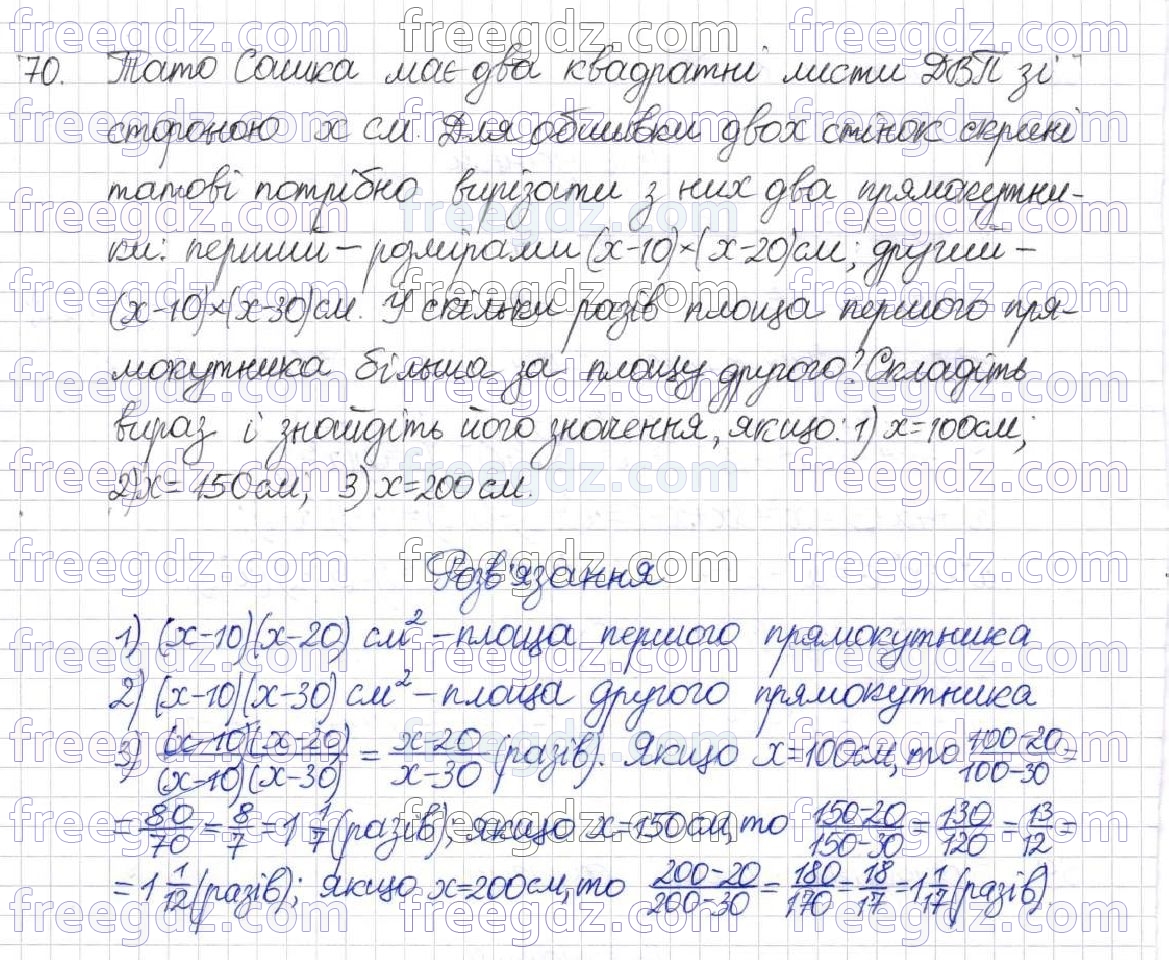 70. Тато Сашка має два квадратні листи ДВП зі
стороною x см. Для обшивки двох стінок скрині
татові потрібно вирізати з них два прямокутни-
ки: перший – розмірами (x-10)×(x-20)см; другий –
(x-10)×(x-30)см. У скільки разів площа першого пря-
мокутника більша за площу другого? Складіть
вираз і знайдіть його значення, якщо: 1) x=100см;
2) x=150см; 3) x=200см.
Розв'язання
1) (x-10)(x-20) см² – площа першого прямокутника
2) (x-10)(x-30) см² – площа другого прямокутника
3) (x-10)(x-20)/(x-10)(x-30) = x-20/x-30 (разів). Якщо x=100см, то 100-20/100-30 =
= 80/70 = 8/7 = 1 1/7 (разів); якщо x=150см, то 150-20/150-30 = 130/120 = 13/12 =
= 1 1/12 (разів); якщо x=200см, то 200-20/200-30 = 180/170 = 18/17 = 1 1/17 (разів).
freegdz.com